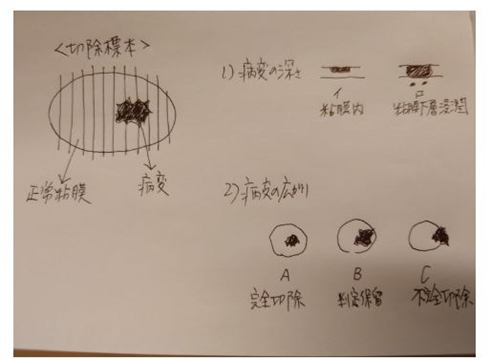 <切除標本>
正常粘膜
病変
1) 病変の深さ
イ
粘膜内
ロ
粘膜下層浸潤
2) 病変の広がり
A
完全切除
B
判定保留
C
不完全切除